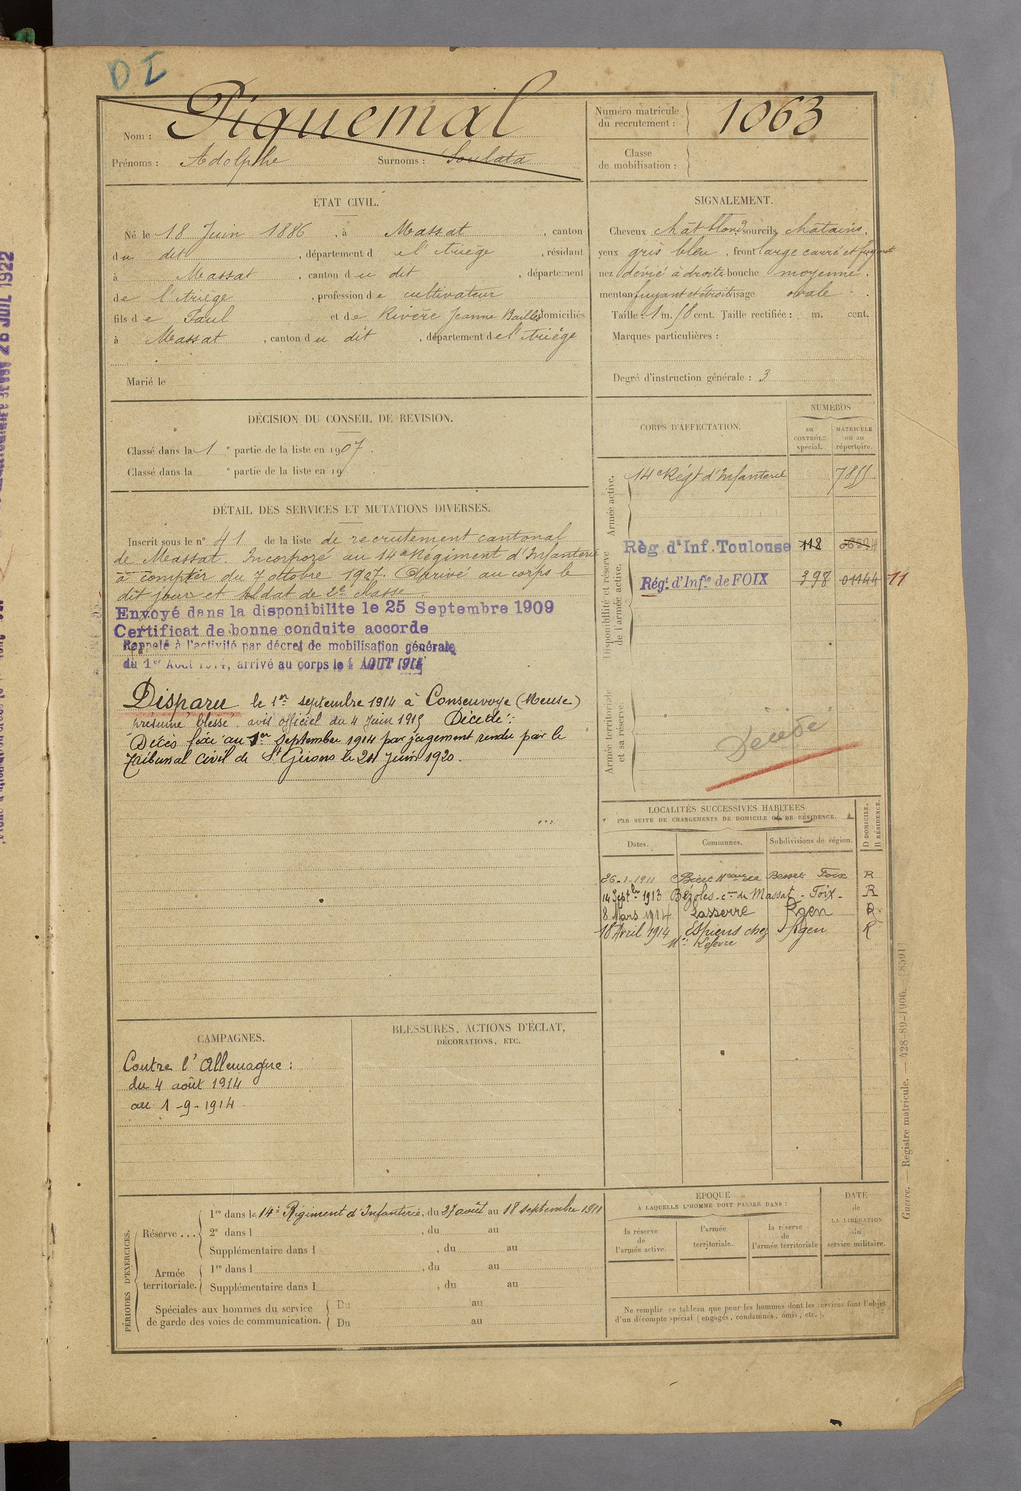 DI
Nom : Piquemal
Prénoms : Adolphe Surnoms : Soulata
Numéro matricule
du recrutement : 1063
Classe
de mobilisation :
ÉTAT CIVIL.
Né le 18 Juin 1886, à Massat, canton
du dit, département d e l'Ariège, résidant
à Massat, canton du dit, département
de l'Ariège, profession de cultivateur
fils de Paul et de Rivère Jeanne domiciliés
à Massat, canton du dit, département de l'Ariège
Marié le
SIGNALEMENT.
Cheveux chât blond sourcils châtains
yeux gris bleu, front large carré et fuyant
nez dévié à droite bouche moyenne
menton fuyant et étroit visage ovale
Taille : 1 m. 58 cent. Taille rectifiée : m. cent.
Marques particulières :
Degré d'instruction générale : 3
DÉCISION DU CONSEIL DE REVISION.
Classé dans la 1 e partie de la liste en 1907.
Classé dans la e partie de la liste en 19
CORPS D'AFFECTATION.
NUMÉROS
au
contrôle
spécial.
MATRICULE
ou au
répertoire.
Armée active.
14e Régt d'Infanterie 7855
Disponibilité et réserve
de l'armée active.
Règ d'Inf. Toulouse 118
Régt. d'Infie de FOIX 398 01144 11
Armée territoriale
et sa réserve.
Décédé
DÉTAIL DES SERVICES ET MUTATIONS DIVERSES.
Inscrit sous le n° 41 de la liste de recrutement cantonal
de Massat. Incorporé au 14e Régiment d'Infanterie
à compter du 7 octobre 1907. Arrivé au corps le
dit jour et soldat de 2e classe.
Envoyé dans la disponibilite le 25 Septembre 1909
Certificat de bonne conduite accorde
Rappelé à l'activité par décret de mobilisation générale
du 1er Août 1914, arrivé au corps le 4 AOUT 1914
Disparu le 1er septembre 1914 à Consenvoye (Meuse)
présumé blessé avis officiel du 4 Juin 1915 Décédé :
Décès fixé au 1er Septembre 1914 par jugement rendu par le
Tribunal civil de St Girons le 24 Juin 1920.
LOCALITÉS SUCCESSIVES HABITÉES
PAR SUITE DE CHANGEMENTS DE DOMICILE OU DE RÉSIDENCE.
D DOMICILE.
R RÉSIDENCE.
Dates. Communes. Subdivisions de région.
26-1-1911 Foix R
14 Septbre 1913 Bézoles cne de Massat - Foix - R
8 Mars 1914 Lasserre Agen R
18 Avril 1914 Espiens chez Agen R
Mr
CAMPAGNES.
Contre l'Allemagne :
du 4 août 1914
au 1-9-1914
BLESSURES, ACTIONS D'ÉCLAT,
DÉCORATIONS, ETC.
PÉRIODES D'EXERCICES.
Réserve . . .
1re dans le 14e Régiment d'Infanterie, du 27 août au 18 septembre 1911
2e dans l , du au
Supplémentaire dans l , du au
Armée
territoriale.
1re dans l , du au
Supplémentaire dans l , du au
Spéciales aux hommes du service
de garde des voies de communication.
Du au
Du au
ÉPOQUE
À LAQUELLE L'HOMME DOIT PASSER DANS :
la réserve
de
l'armée active.
l'armée
territoriale.
la réserve
de
l'armée territoriale
DATE
de
LA LIBÉRATION
du
service militaire.
Ne remplir ce tableau que pour les hommes dont les services font l'objet
d'un décompte spécial (engagés, condamnés, omis, etc.).
Guerre. — Registre matricule. — 428-89-1906. [8591]